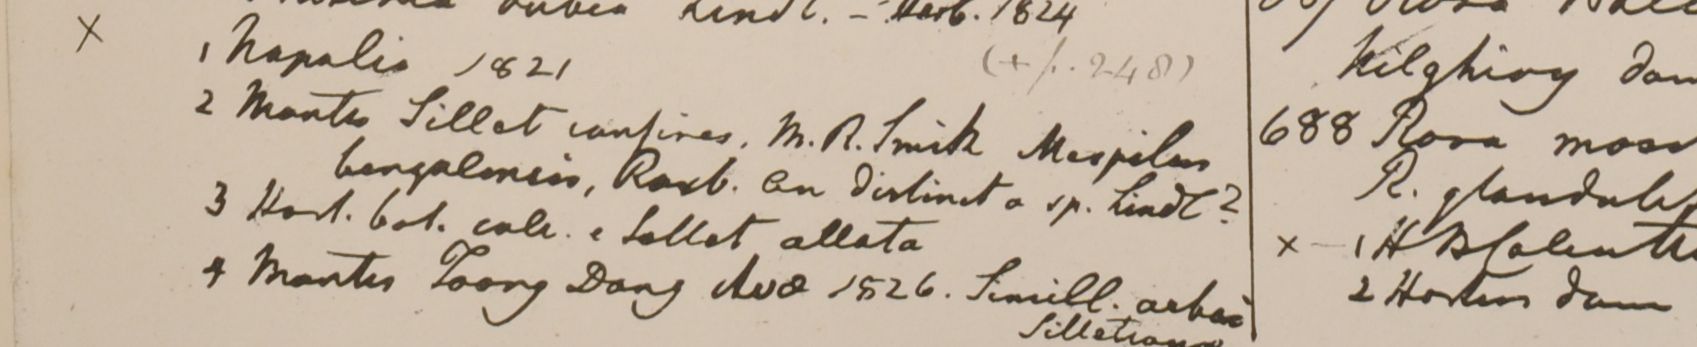 rubra Lindl. - Herb. 1824
X
1 Napalia 1821 (+/. 248)
2 Montes Sillet confines, M.R. Smith Mespilus
bengalensis, Roxb. an distinct a sp. Lindl?
3 Hort. bot. calc. e Sillet allata
4 Montes Toong Dong Ava 1826. Simill. arbori
Silletianae
Rosa
Kilghivy dom
688 Rosa mosc
R. glandulif
x - 1 H B Calcutta
2 Hortus dom